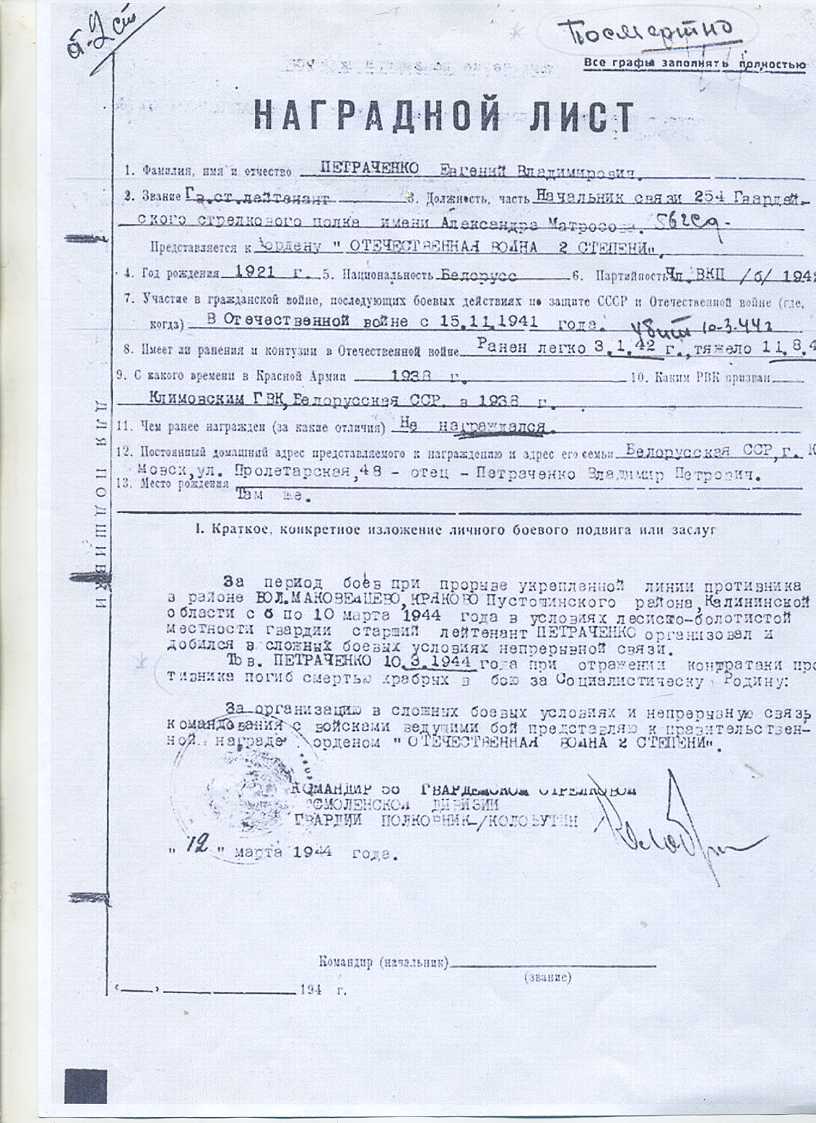 Посмертно
Все графы заполнять полностью
НАГРАДНОЙ ЛИСТ
1. Фамилия, имя и отчество ПЕТРАЧЕНКО Евгений Владимирович.
2. Звание Гв.ст.лейтенант 3. Должность, часть Начальник связи 254 Гвардей-
ского стрелкового полка имени Александра Матросова. 56гсд.
Представляется к ордену " ОТЕЧЕСТВЕННАЯ ВОЙНА 2 СТЕПЕНИ".
4. Год рождения 1921 г. 5. Национальность Белорусс 6. Партийность Чл.ВКП /б/ 194
7. Участие в гражданской войне, последующих боевых действиях по защите СССР и Отечественной войне (где,
когда) В Отечественной войне с 15.11.1941 года. убит 10.3.44г
8. Имеет ли ранения и контузии в Отечественной войне Ранен легко 3.1.42 г., тяжело 11.8.4
9. С какого времени в Красной Армии 1938 г. 10. Каким РВК призван
Климовским ГВК, Белорусская ССР. в 1938 г.
11. Чем ранее награжден (за какие отличия) Не награждался.
12. Постоянный домашний адрес представляемого к награждению и адрес его семьи Белорусская ССР, г. К
мовск, ул. Пролетарская, 48 - отец - Петраченко Владимир Петрович.
13. Место рождения Там же.
ДЛЯ ПОДШИВКИ
I. Краткое, конкретное изложение личного боевого подвига или заслуг
За период боёв при прорыве укрепленной линии противника
в районе КРЯКОВО Пустошинского района, Калининской
области с 6 по 10 марта 1944 года в условиях лесисто-болотистой
местности гвардии старший лейтенант ПЕТРАЧЕНКО организовал и
добился в сложных боевых условиях непрерывной связи.
Тов. ПЕТРАЧЕНКО 10.3.1944 года при отражении контратаки про
тивника погиб смертью храбрых в бою за Социалистическу Родину:
За организацию в сложных боевых условиях и непрерывную связь
командования с войсками ведущими бой представляю к правительствен-
ной награде орденом " ОТЕЧЕСТВЕННАЯ ВОЙНА 2 СТЕПЕНИ".
КОМАНДИР 56 ГВАРДЕЙСКОЙ СТРЕЛКОВОЙ
СМОЛЕНСКОЙ ДИВИЗИИ
ГВАРДИИ ПОЛКОВНИК-/КОЛОБУТИН
" 12 " марта 1944 года.
Командир (начальник)
(звание)
194 г.